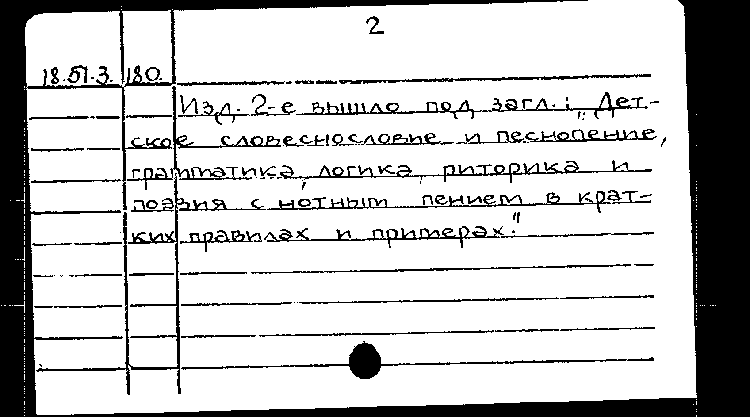 2
18.51.3. 180.
Изд. 2-е вышло под загл.: „Дет-
ское словеснословие и песнопение,
грамматика, логика, риторика и
поэзия с нотным пением в крат-
ких правилах и примерах."